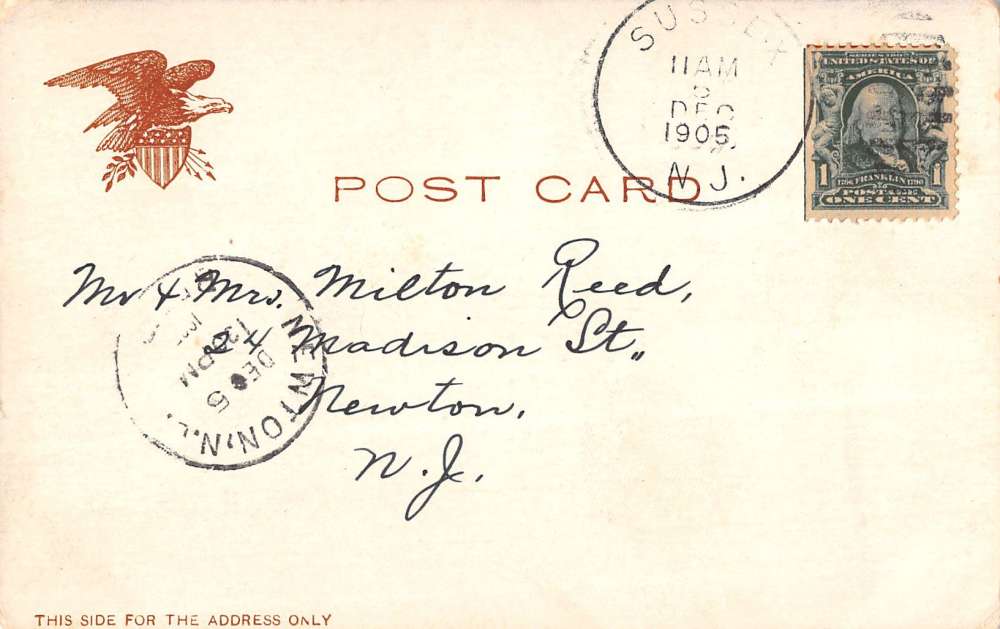 SUSSEX
11 AM
5
DEC
1905
N.J.
SERIES 1902
UNITED STATES OF
AMERICA
1 FRANKLIN 1
POSTAGE
ONE CENT
POST CARD
Mr & Mrs. Milton Reed,
24 Madison St.,
Newton,
N.J.
NEWTON, N.J.
DEC 5
PM
THIS SIDE FOR THE ADDRESS ONLY